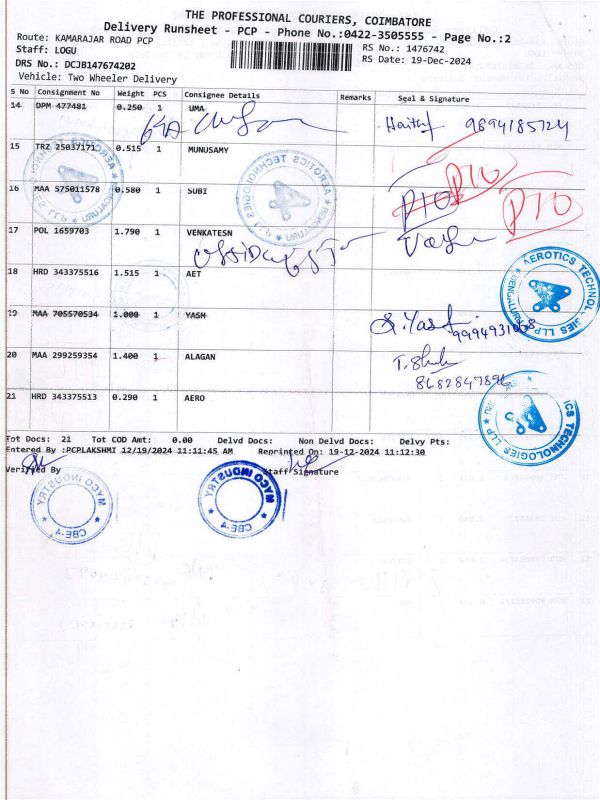 THE PROFESSIONAL COURIERS, COIMBATORE
Delivery Runsheet - PCP - Phone No.:0422-3505555 - Page No.:2
Route: KAMARAJAR ROAD PCP
RS No.: 1476742
Staff: LOGU
RS Date: 19-Dec-2024
DRS No.: DCJB147674202
Vehicle: Two Wheeler Delivery
S No Consignment No Weight PCS Consignee Details Remarks Seal & Signature
14 DPM 477481 0.250 1 UMA
9894185724
15 TRZ 25037171 0.515 1 MUNUSAMY
PTO
16 MAA 575011578 0.580 1 SUBI
PTO PTO
17 POL 1659703 1.790 1 VENKATESN
18 HRD 343375516 1.515 1 AET
AEROTICS TECHNOLOGIES LLP
BENGALURU
19 MAA 705570534 1.000 1 YASH
20 MAA 299259354 1.400 1 ALAGAN
21 HRD 343375513 0.290 1 AERO
Tot Docs: 21 Tot COD Amt: 0.00 Delvd Docs: Non Delvd Docs: Delvy Pts:
Entered By :PCPLAKSHMI 12/19/2024 11:11:45 AM Reprinted On: 19-12-2024 11:12:30
Verified By Staff Signature
MYCO INDUSTRY
CBE-4